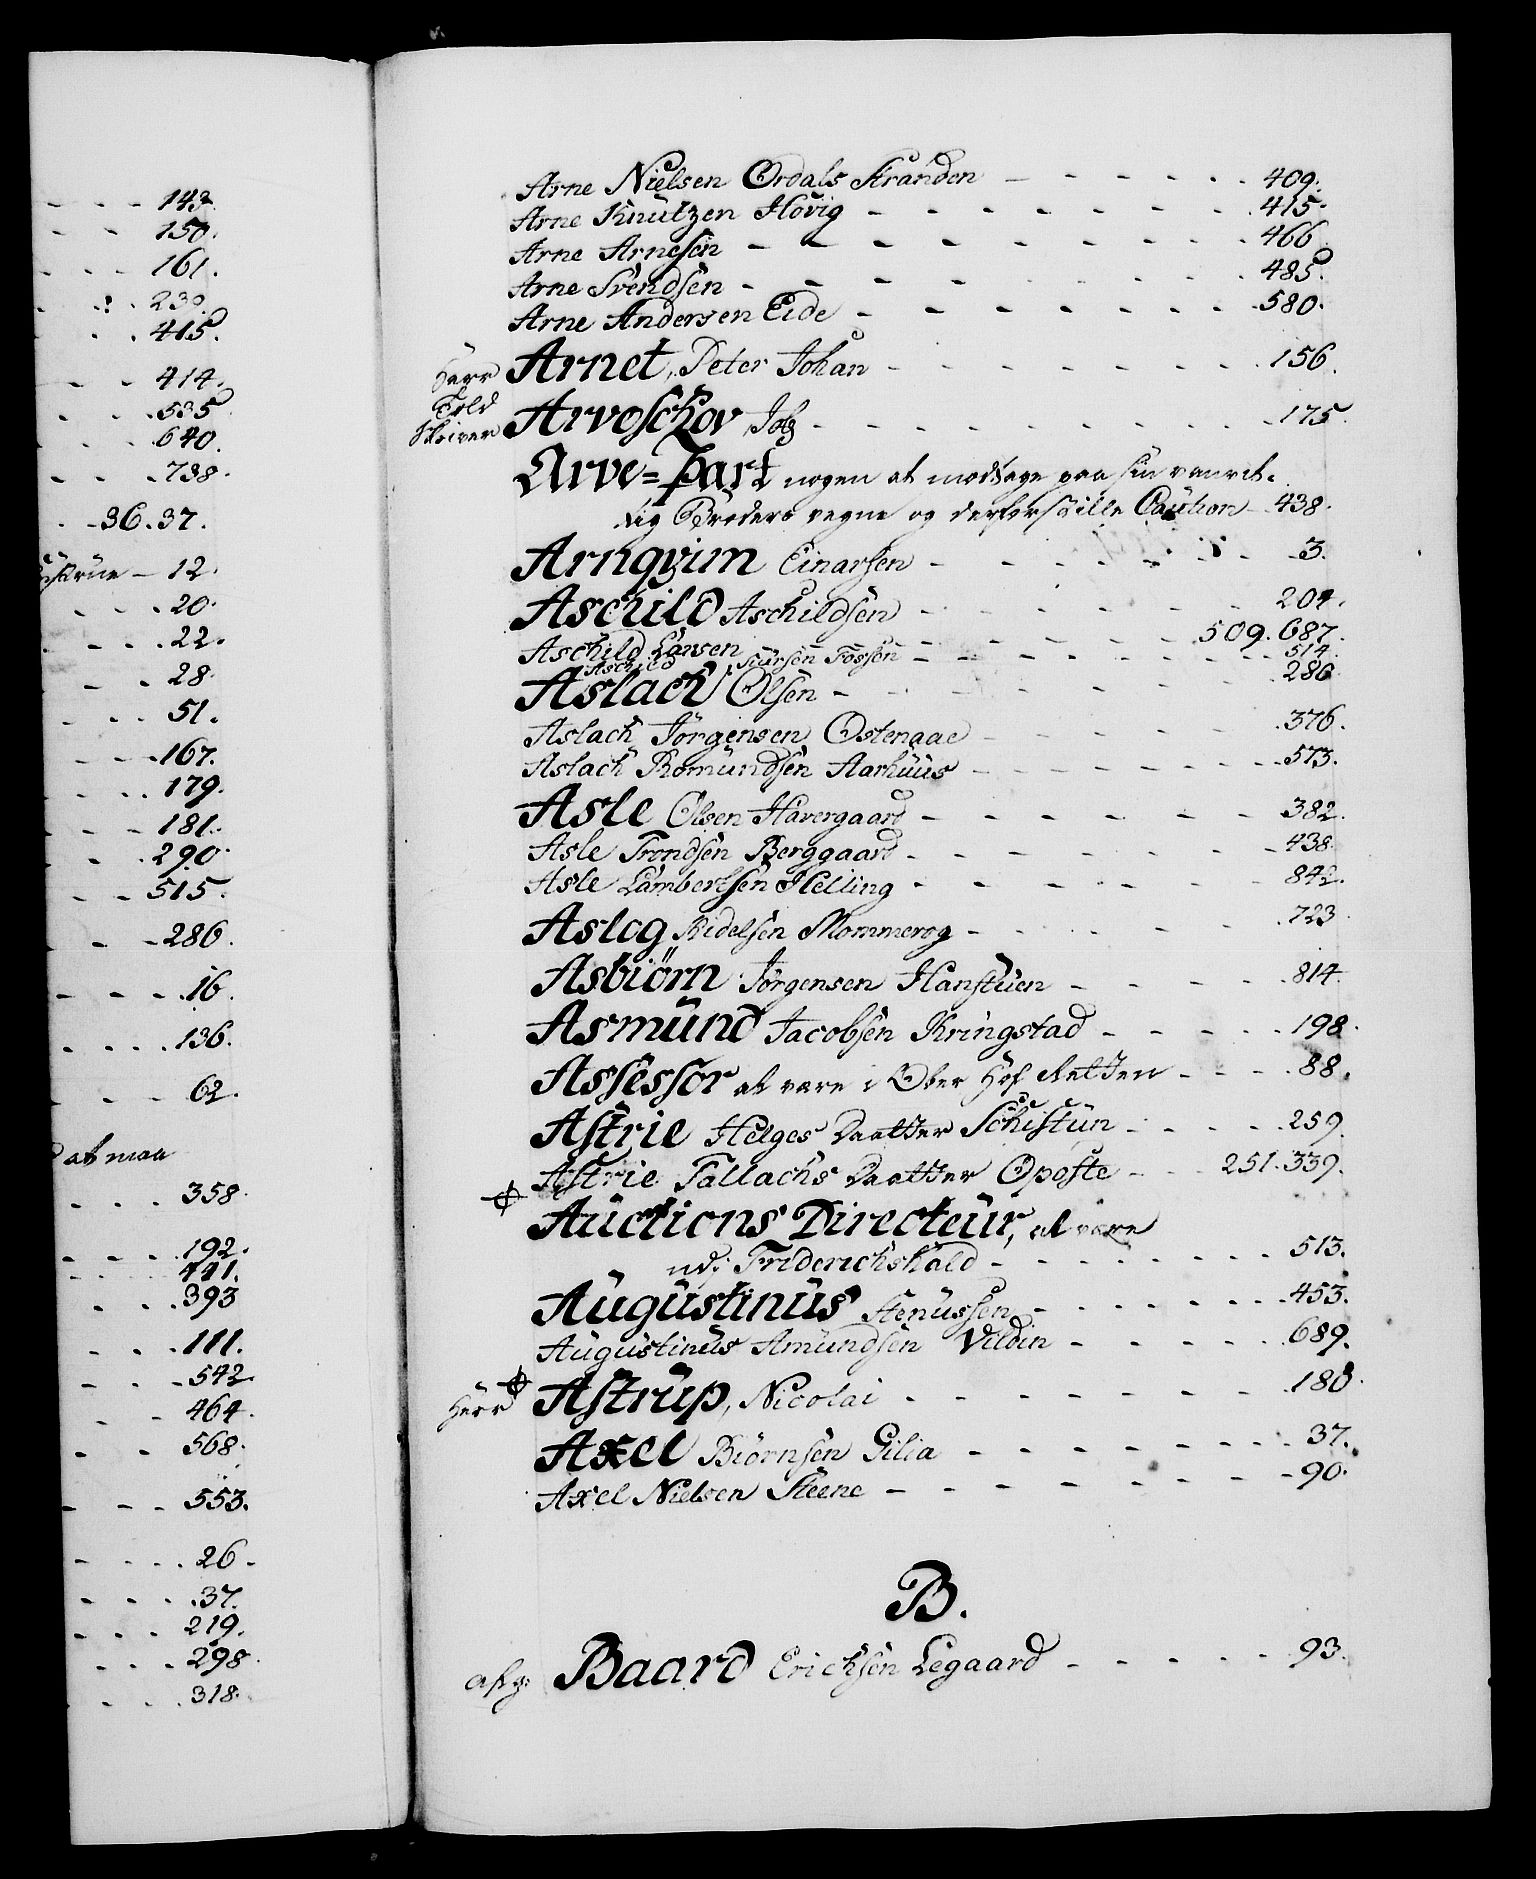 143.
150.
161.
230.
415.
414.
535
640.
738.
36.37.
12.
20.
22.
28.
51.
167.
179.
181.
290.
515.
286.
16.
136.
62.
at maa
358.
192.
441.
393
111.
542
464.
568.
553.
26.
37.
219.
298.
318.
Arne Nielsen Ordals Stranden 409.
Arne Knutzen Hövig 415.
Arne Arnesen 466
Arne Svendsen 485.
Arne Andersen Eide 580.
Herr Arnet, Peter Johan 156.
Told Skriver Arvoschov Job 175.
Arve=Part nogen at modtage paa sin vanvit-
tig Broders vegne og derfor stille Caution 438.
Arngrim Einarsen 3.
Aschild Aschildsen 204.
Aschild Larsen 509.687.
Aschild Siursen Fossen 514.
Aslach Olsen 286
Aslach Jörgensen Ostenaae 376.
Aslach Romundsen Aarhuus 573.
Asle Olsen Havergaard 382.
Asle Trondsen Berggaard 438.
Asle Lambertsen Helling 842.
Aslog Kidelsen Mommerog 723
Asbiörn Jörgensen Hanstuen 814
Asmund Jacobsen Kringstad 198.
Assessor at være i Ober Hof Retten 88.
Astrie Helges Daatter Schistun 259.
Astrie Tallachs Daatter Oposte 251.339.
Auctions Directeur, at være
udj Friderichshald 513.
Augustinus Stenussen 453.
Augustinus Amundsen Vildin 689.
Herr Astrup, Nicolai 180.
Axel Biörnsen Gilia 37.
Axel Nielsen Steene 90.
B.
Baard Erichsen Legaard 93.